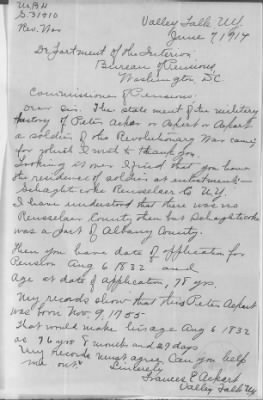 W.B.H
S.31910
Rev. War
Valley Falls N.Y.
June 7, 1914
Department of the Interior
Bureau of Pensions
Washington DC
Commissioner of Pensions
Dear Sir. The statement of the military
history of Peter Acker or Ackert or Ackart
a soldier of the Revolutionary War came
for which I wish to thank you.
Looking it over I find that you have
the residence of soldier at enlistment—
Schaghticoke Rensselaer Co N.Y.
I have understood that there was no
Rensselaer County then but Schaghticoke
was a part of Albany County.
Then you have date of application for
Pension Aug 6 1832 and
Age at date of application, 78 yrs.
My records show that this Peter Ackart
was born Nov. 9, 1755
That would make his age Aug 6 1832
as 76 yrs 8 months and 27 days
My records must agree Can you help
me out.
Sincerely
Frances E Ackart
Valley Falls NY